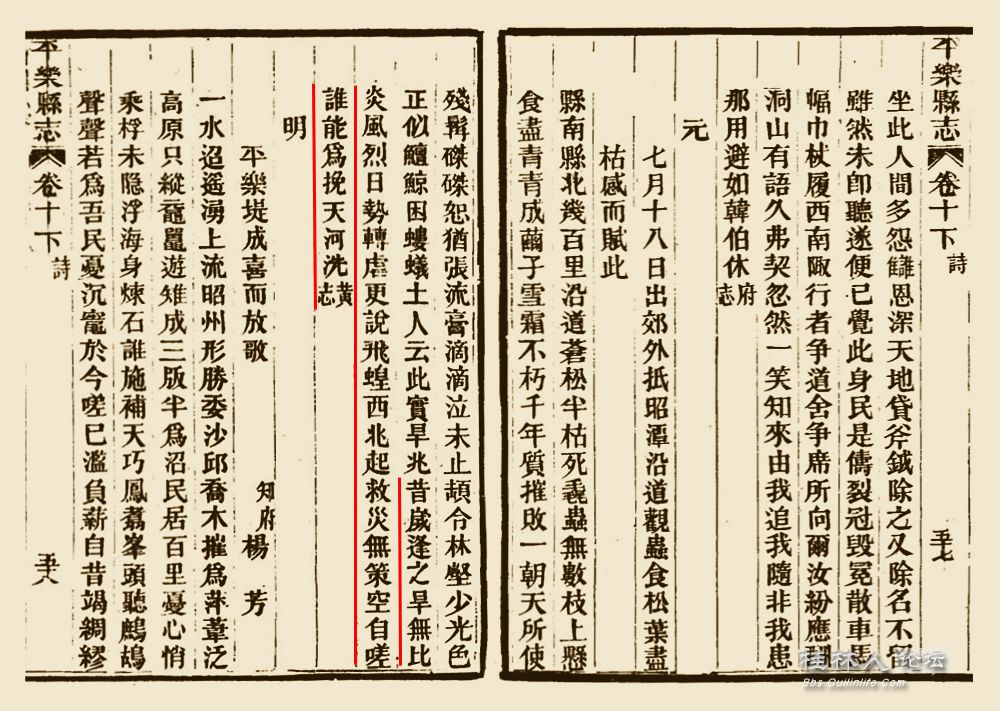 平樂縣志 卷十下 詩 五十七
坐此人間多怨讎恩深天地貸斧鉞除之又除名不留
雖然未卽聽遂便已覺此身民是儔裂冠毀冕散車馬
幅巾杖履西南陬行者爭道舍爭席所向爾汝紛應
洞山有語久弗契忽然一笑知來由我追我隨非我患
那用避如韓伯休府志
元
七月十八日出郊外抵昭潭沿道觀蟲食松葉盡
枯感而賦此
縣南縣北幾百里沿道蒼松半枯死毳蟲無數枝上懸
食盡青青成繭子雪霜不朽千年質摧敗一朝天所使
殘髯磔磔恕猶張流膏滴滴泣未止頓令林壑少光色
正似鱣鯨困螻蟻土人云此實旱兆昔歲逢之旱無比
炎風烈日勢轉虐更說飛蝗西北起救災無策空自嗟
誰能爲挽天河洗黃志
明
平樂堤成喜而放歌 知府楊芳
一水迢遙湧上流昭州形勝委沙邱喬木摧爲萍葦泛
高原只縱黿鼉遊雉成三版半爲沼民居百里憂心悄
乘桴未隐浮海身煉石誰施補天巧鳳翥峯頭聽鷓鴣
聲聲若爲吾民憂沉竈於今嗟已濫負薪自昔竭綢繆
平樂縣志 卷十下 詩 五十八
桂林人论坛
Bbs.Guilinlife.Com